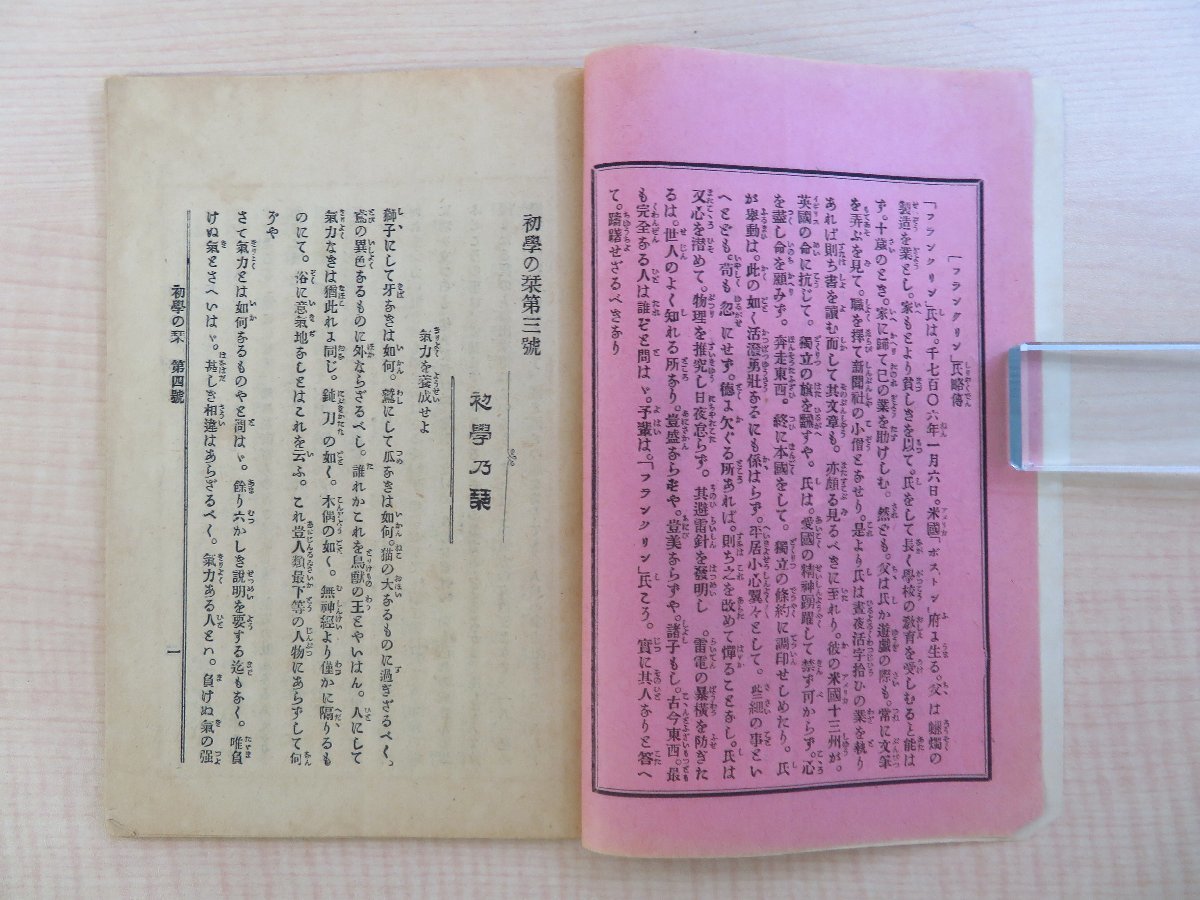 「フランクリン」氏略傳
「フランクリン」氏は。千七百〇六年一月六日。米國「ボストン」府に生る。父は蠟燭の
製造を業とし。家もとより貧しきを以て。氏をして長く學校の敎育を受しむると能は
ず。十歳のとき。家に歸て己の業を助けしむ。然ども。父は氏か遊戯の際も。常に文筆
を弄ぶを見て。職を擇て新聞社の小僧となせり。是より氏は晝夜活字拾ひの業を執り
あれば則ち書を讀む而して其文章も。亦頗る見るべきに至れり。彼の米國十三州が。
英國の命に抗じて。獨立の旗を飜すや。氏は。愛國の精神踴躍して禁ず可からず。心
を盡し命を顧みず。奔走東西。終に本國をして。獨立の條約に調印せしめたり。氏
が擧動は。此の如く活潑勇壯なるにも係はらず。平居小心翼々として。些細の事とい
へとども。苟も忽にせず。德よ欠ぐる所あれば。則ち之を改めて憚ることなし。氏は
又心を潜めて。物理を推究し日夜怠らず。其避雷針を發明し 。雷電の暴橫を防ぎた
るは。世人のよく知れる所なり。豈盛ならせや。豈美ならずや。諸子もし。古今東西。最
も完全なる人は誰ぞと問はヾ。予輩は。「フランクリン」氏ころ。實に其人なりと答へ
て。躊躇せざるべきなり
初學の栞第三號
初學乃栞
氣力を養成せよ
獅子にして牙なきは如何。鷲にして爪なきは如何。猫の大なるものに過ぎざるべく。
鳶の異色なるものに外ならざるべし。誰れかこれを鳥獸の王とやいはん。人にして
氣力なきは猶此れよ同じ。鈍刀の如く。木偶の如く。無神經より僅かに隔りるも
のにて。俗に意氣地なしとはこれを云ふ。これ豈人類最下等の人物にあらずして何
ぞや
さて氣力とは如何なるものやと問はヾ。餘り六かしき說明を要する迄もなく。唯負
けぬ氣とさへいはヾ。甚しき相違はあらざるべく。氣力ある人とハ。負けぬ氣の强
初學の栞 第四號
一